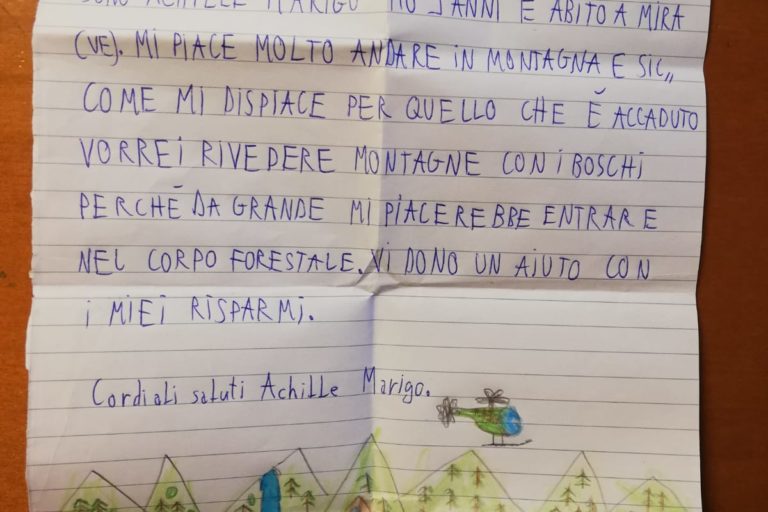 SONO ACHILLE MARIGO HO 9 ANNI E ABITO A MIRA
(VE). MI PIACE MOLTO ANDARE IN MONTAGNA E SIC,,
COME MI DISPIACE PER QUELLO CHE É ACCADUTO
VORREI RIVEDERE MONTAGNE CON I BOSCHI
PERCHÉ DA GRANDE MI PIACEREBBE ENTRARE
NEL CORPO FORESTALE. VI DONO UN AIUTO CON
I MIEI RISPARMI.
Cordiali saluti Achille Marigo.